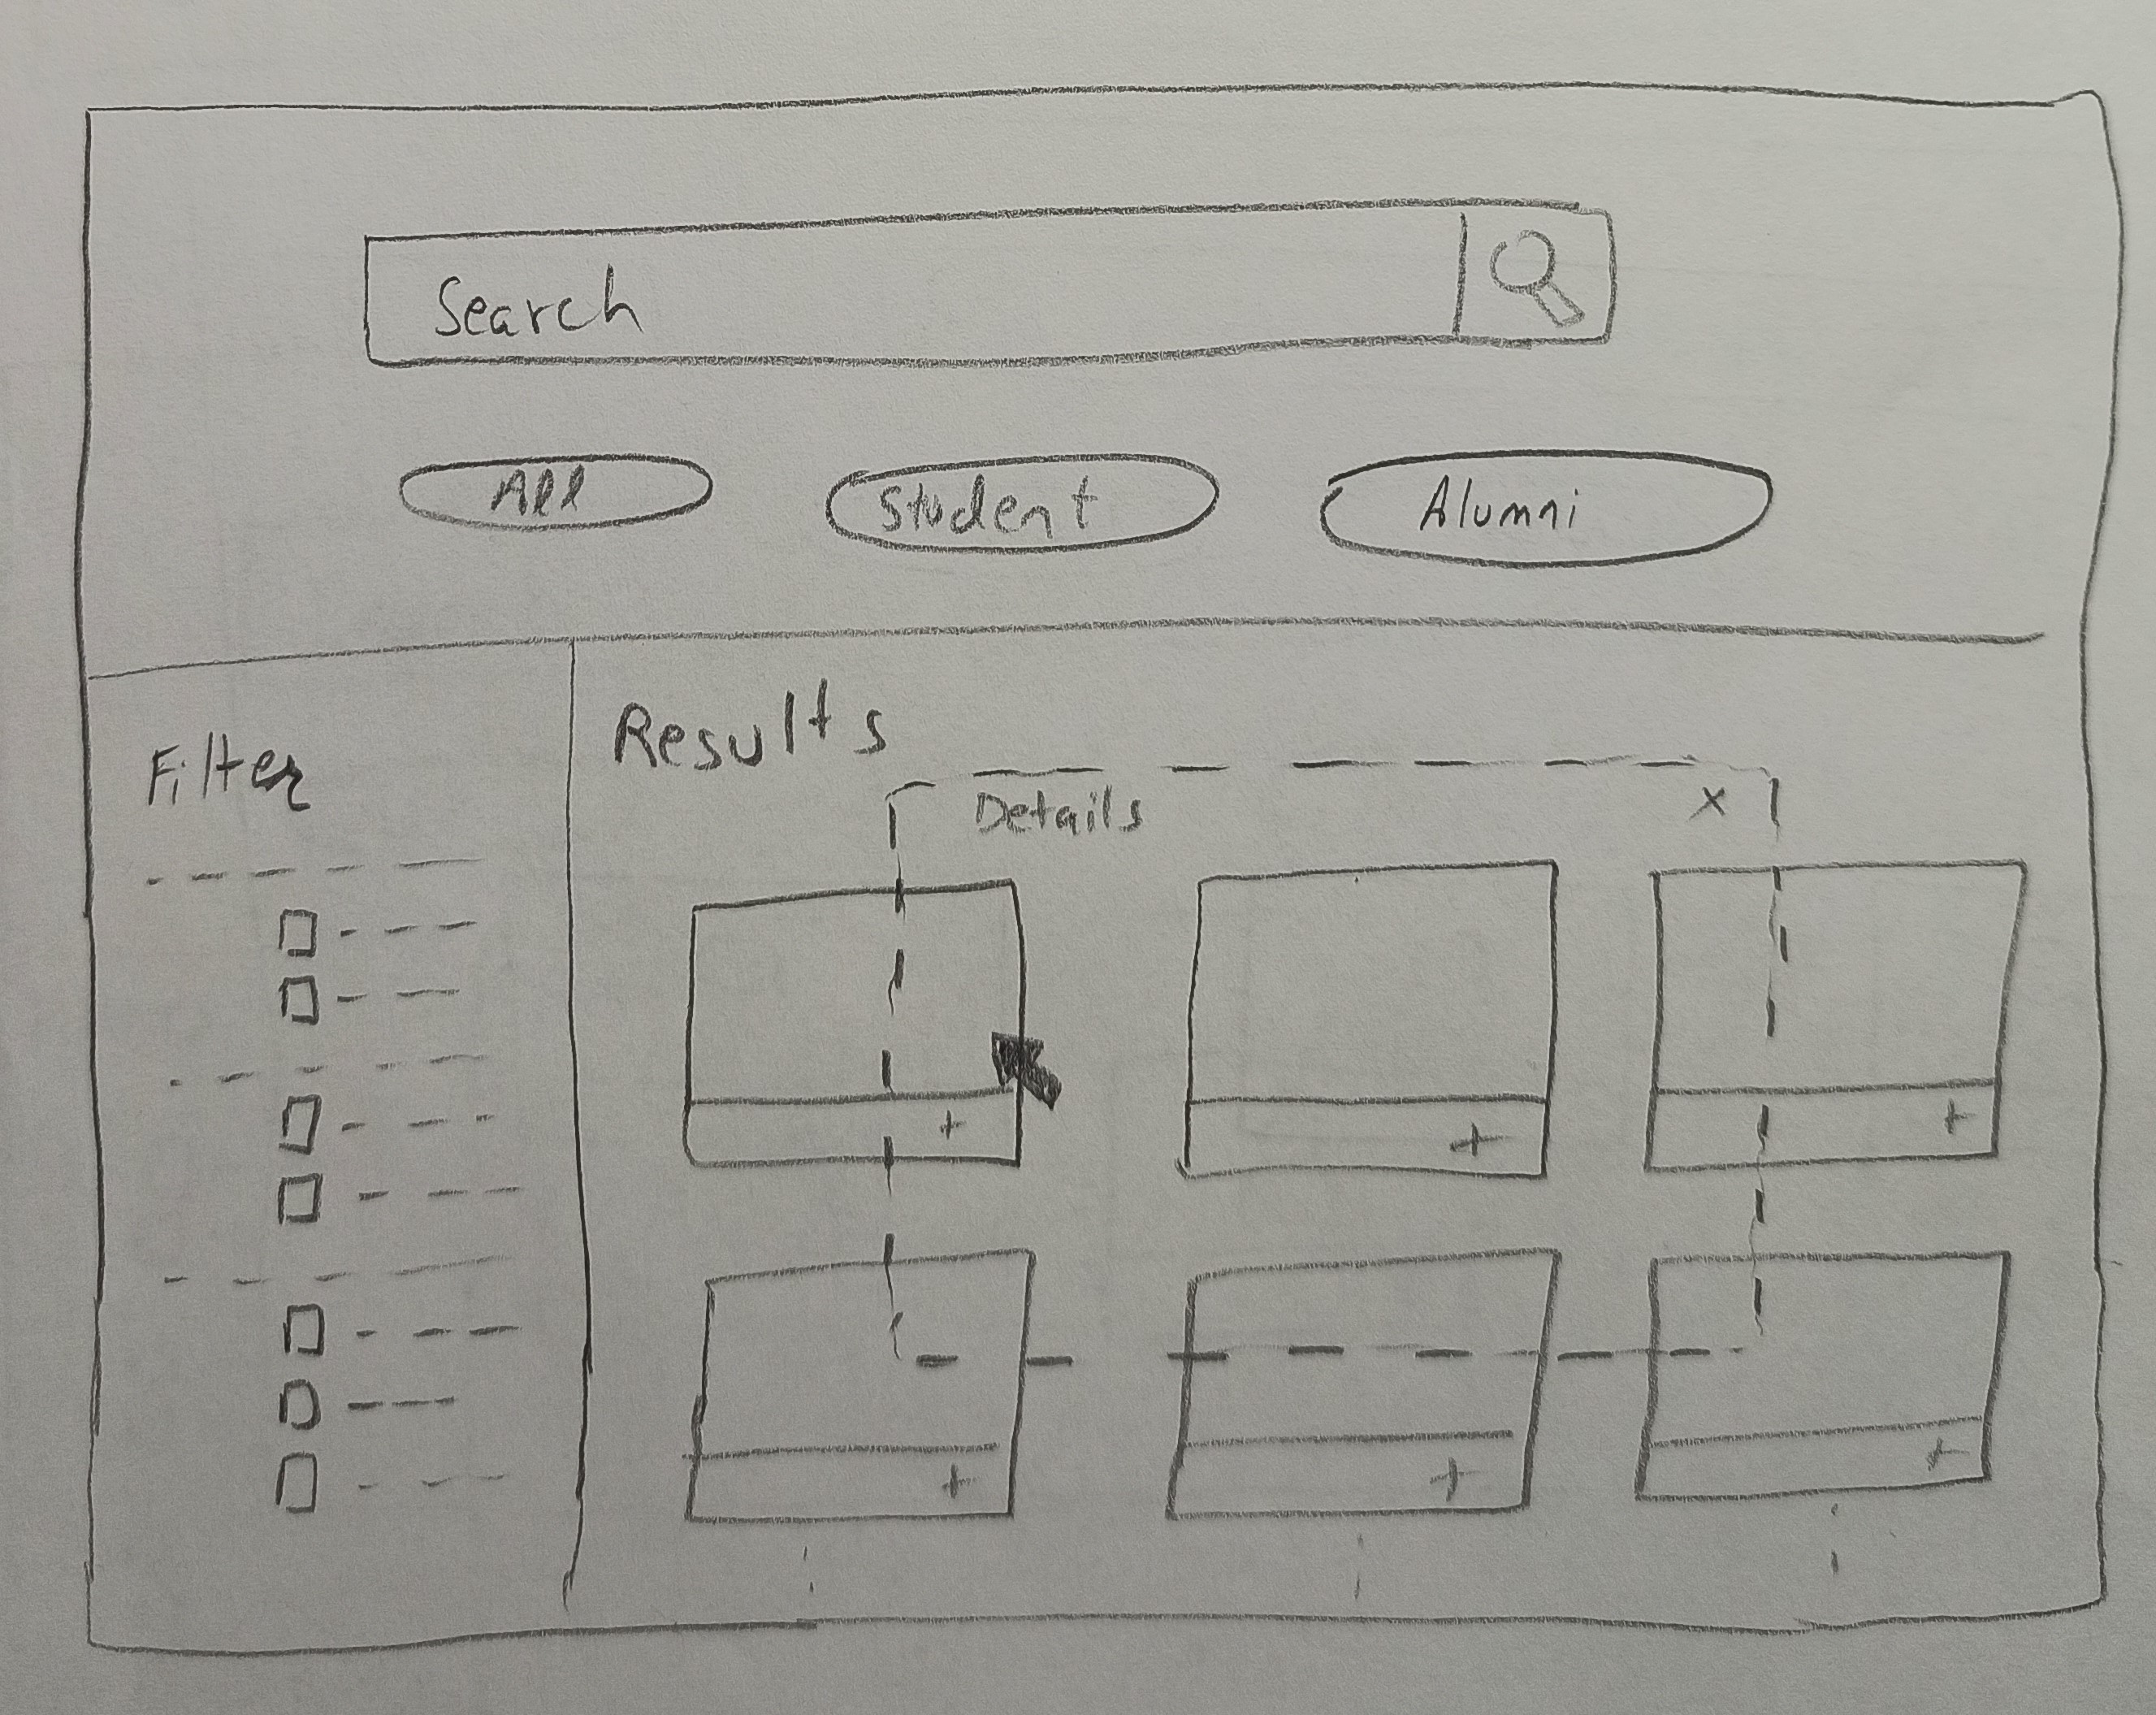 Search
All
Student
Alumni
Filter
Results
Details
x
+
+
+
+
+
+